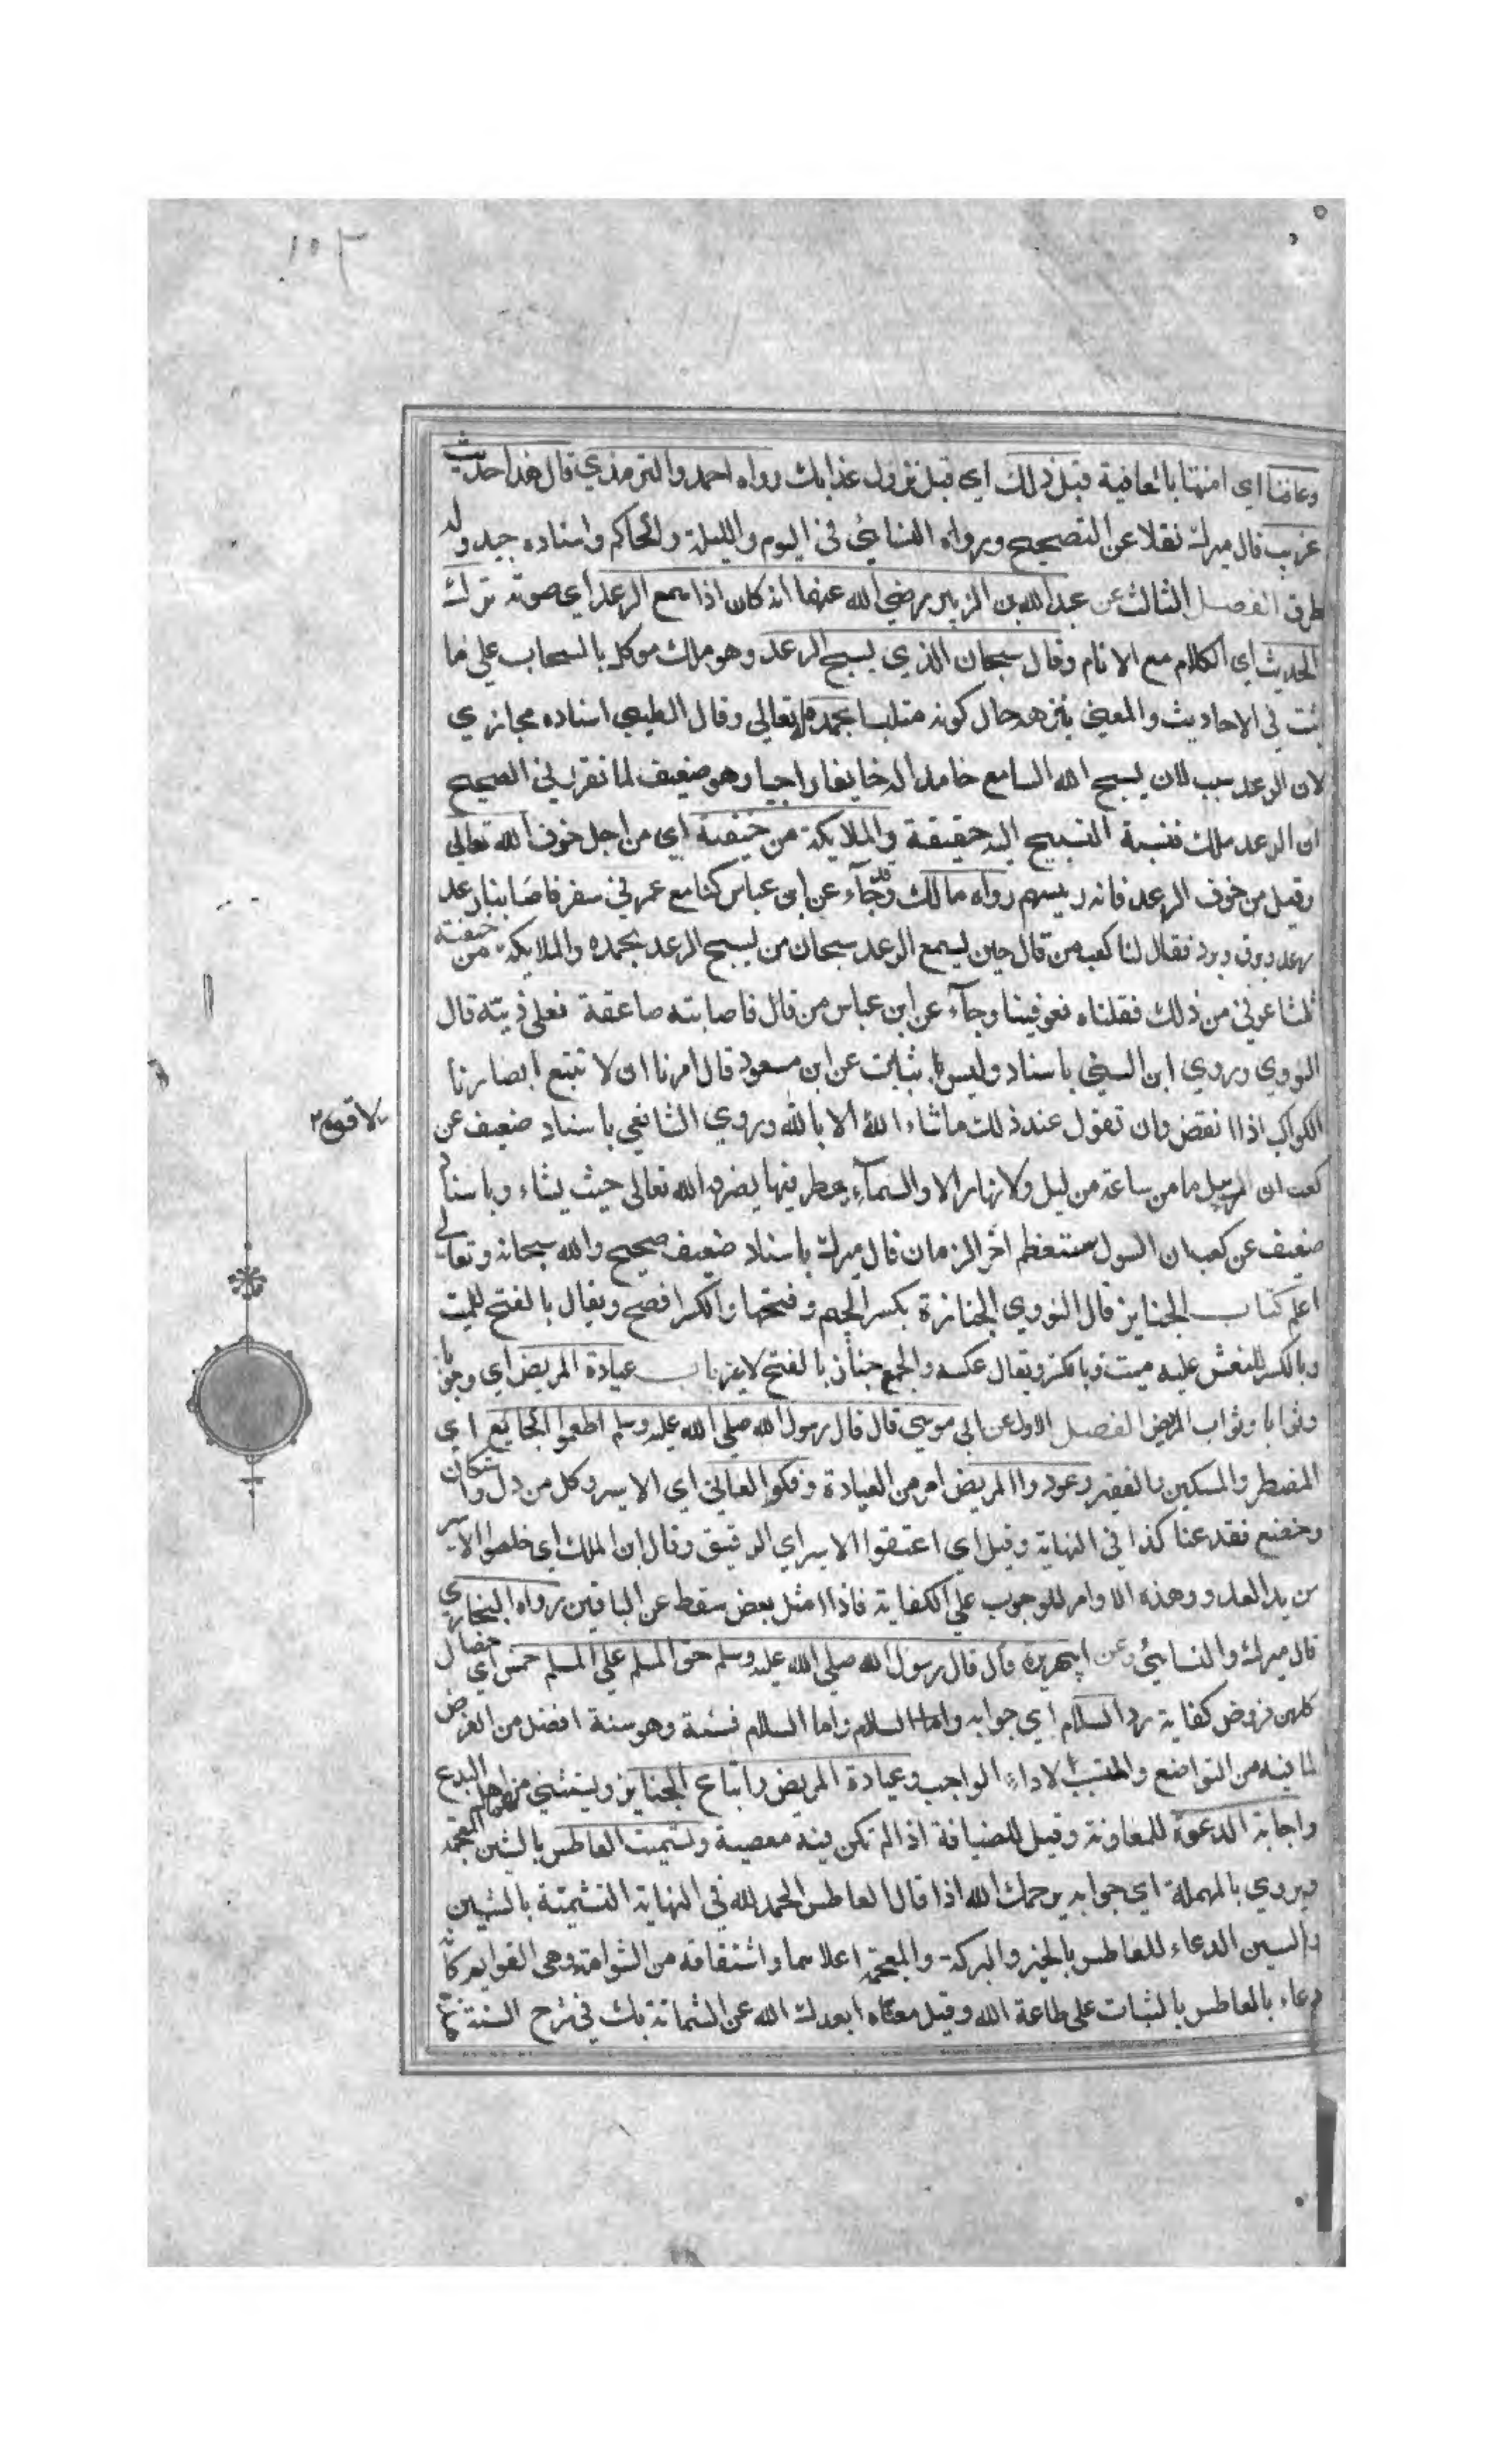 ١٥٣
وعافنا اي امتنا بالعافية قبل ذلك اي قبل نزول عذابك رواه احمد والترمذي قال هذا حديث
غريب قال ميرك نقلا عن التصحيح ورواه النسائي في اليوم والليلة والحاكم واسناده جيد وله
طرق الفصل الثالث عن عبد الله بن الزبير رضي الله عنهما انه كان اذا سمع الرعد اي صوته ترك
الحديث اي الكلام مع الانام وقال سبحان الذي يسبح الرعد وهو ملك موكل بالسحاب على ما
ثبت في الاحاديث والمعنى ينزهه حال كونه متلبسا بحمده له تعالى وقال الطيبي اسناده مجازي
لان الرعد سبب لان يسبح الله السامع حامدا له خايفا راجيا وهو ضعيف لما تقرر في الصحيح
ان الرعد ملك فنسبة التسبيح اليه حقيقة والملايكة من خيفته اي من اجل خوف الله تعالى
وقيل من خوف الرعد فانه رييسهم رواه مالك وجاء عن ابن عباس كنا مع عمر في سفر فاصابنا رعد
وبرق وبرد فقال لنا كعب من قال حين يسمع الرعد سبحان من يسبح الرعد بحمده والملايكة من خيفته
ثلثا عوفي من ذلك فقلناه فعوفينا وجاء عن ابن عباس من قال فاصابته صاعقة فعلي ديته قال
النووي وروي ابن السني باسناد وليس بثابت عن ابن مسعود قال امرنا ان لا نتبع ابصارنا
الكواكب اذا انقض وان تقول عند ذلك ما شاء الله الا بالله وروي الشافعي باسناد ضعيف عن
لا قوة
كعب ان ما من ساعة من ليل ولا نهار الا والسماء يمطر فيها يصرفه الله تعالى حيث يشاء وباسناد
ضعيف عن كعب ان السيول ستعظم آخر الزمان قال ميرك باسناد ضعيف صحيح والله سبحانه وتعالى
اعلم كتاب الجنايز قال النووي الجنازة بكسر الجيم وفتحها والكسر افصح ويقال بالفتح للميت
وبالكسر للنعش عليه ميت ويقال عكسه والجمع جنايز بالفتح لا غير باب عيادة المريض اي
وثوابا وثواب المرض الفصل الاول عن ابي موسى قال قال رسول الله صلى الله عليه وسلم اطعموا الجايع اي
المضطر والمسكين والفقير وعودوا المريض امر من العيادة وفكوا العاني اي الاسير وكل من ذل واستكان
وخضع فقد عنا كذا في النهاية وقيل اي اعتقوا الاسير اي الرقيق وقال ابن الملك اي خلصوا الاسير
من يد العدو وهذه الاوامر للوجوب على الكفاية فاذا امتثل بعض سقط عن الباقين رواه البخاري
قال ميرك والنسائي وعن ابي هريرة قال قال رسول الله صلى الله عليه وسلم حق المسلم على المسلم خمس اي خصال
كلهن فروض كفاية رد السلام اي جوابه واما السلام فسنة وهو سنة افضل من الفرض
لما فيه من التواضع والتسبب لاداء الواجب وعيادة المريض واتباع الجنايز ويستثنى منهما اهل البدع
واجابة الدعوة للمعاونة وقيل للضيافة اذا لم تكن فيه معصية وتشميت العاطس بالشين المعجمة
ويروي بالمهملة اي جوابه يرحمك الله اذا قال العاطس الحمد لله في النهاية التشميتة بالشين
والسين الدعاء للعاطس بالخير والبركة والمعجمة اعلاهما واشتقاقه من الشوامت وهي القوايم كانه
دعاء بالعاطس بالثبات على طاعة الله وقيل معناه ابعدك الله عن الشماتة بك في شرح السنة